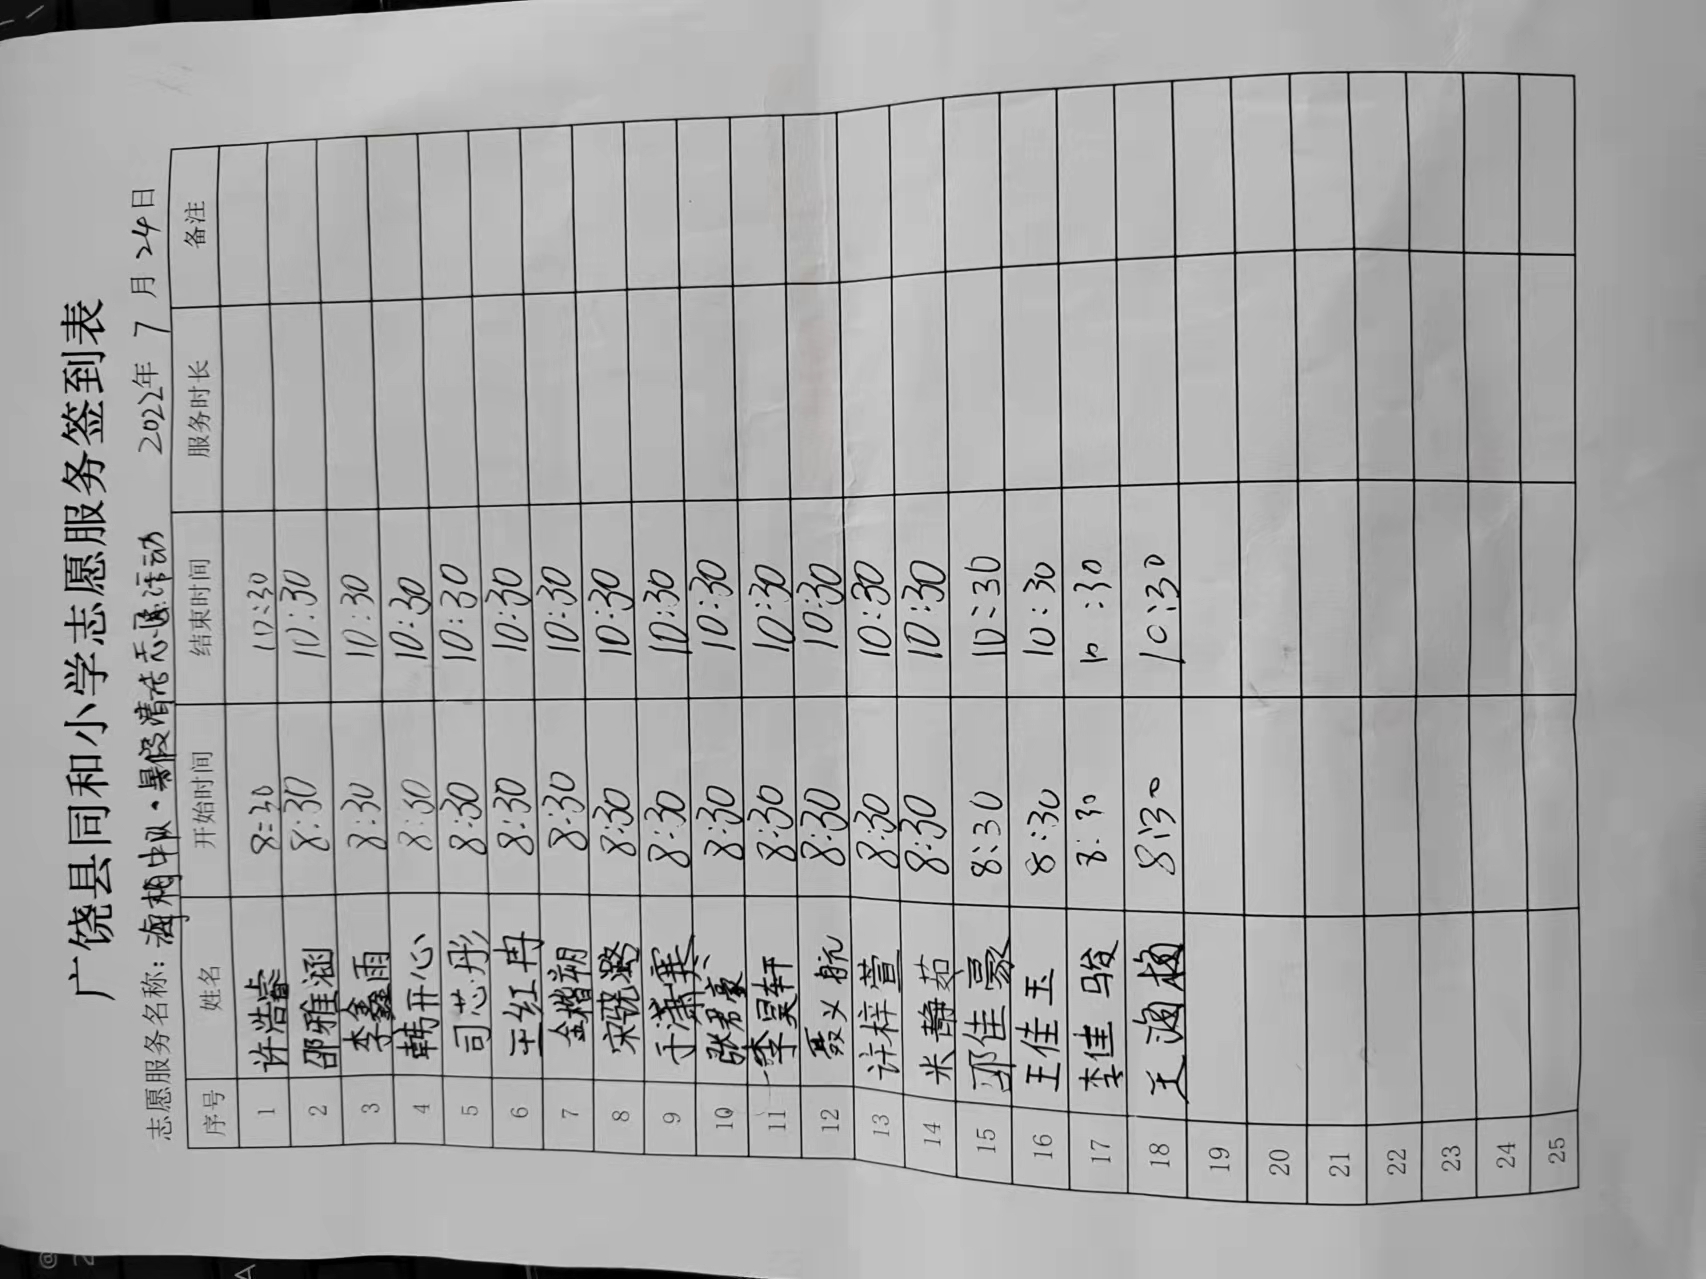 广饶县同和小学志愿服务签到表
志愿服务名称：海柏中队·暑假清志愿活动 2022年 7 月 24 日
序号 姓名 开始时间 结束时间 服务时长 备注
1 许浩睿 8:30 10:30
2 邵雅涵 8:30 10:30
3 李鑫雨 8:30 10:30
4 韩开心 8:30 10:30
5 司芯彤 8:30 10:30
6 王红冉 8:30 10:30
7 金楷朔 8:30 10:30
8 宋骁潞 8:30 10:30
9 于潇骐 8:30 10:30
10 张君豪 8:30 10:30
11 李昊轩 8:30 10:30
12 聂义航 8:30 10:30
13 许梓萱 8:30 10:30
14 米静茹 8:30 10:30
15 邵佳豪 8:30 10:30
16 王佳玉 8:30 10:30
17 李佳骏 8:30 10:30
18 王海柏 8:30 10:30
19
20
21
22
23
24
25